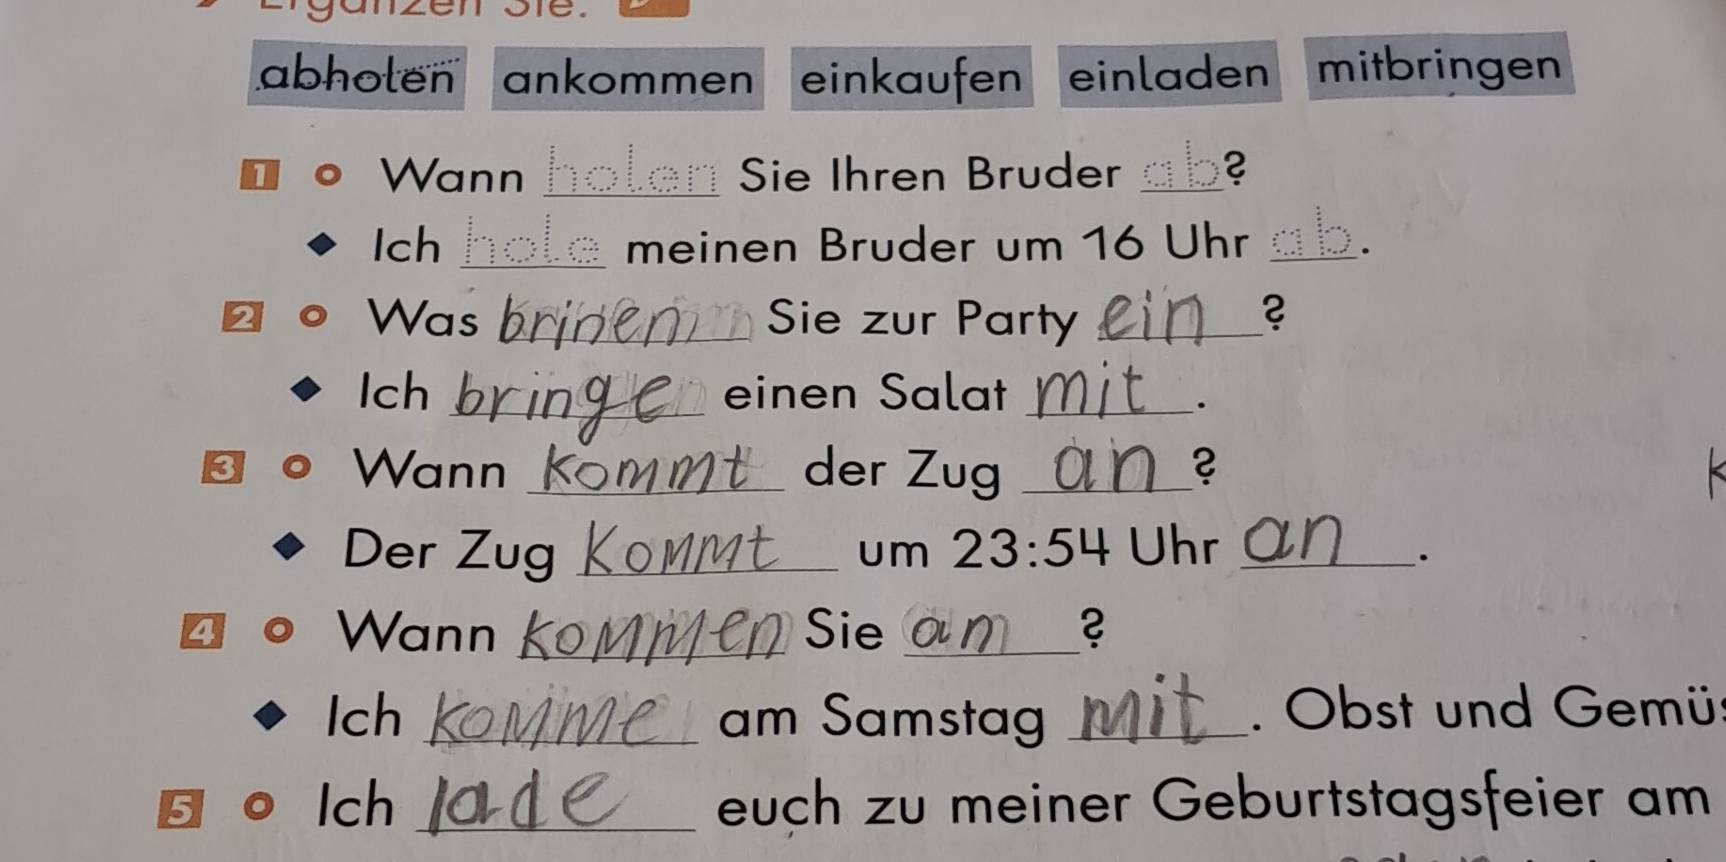 Ergänzen Sie.
abholen ankommen einkaufen einladen mitbringen
1 Wann holen Sie Ihren Bruder ab?
Ich hole meinen Bruder um 16 Uhr ab.
2 Was brinen Sie zur Party ein?
Ich bringe einen Salat mit.
3 Wann kommt der Zug an?
Der Zug kommt um 23:54 Uhr an.
4 Wann kommen Sie am?
Ich komme am Samstag mit. Obst und Gemü
5 Ich lade euch zu meiner Geburtstagsfeier am